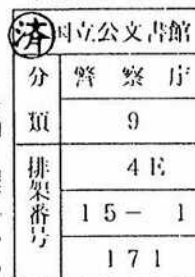 済
国立公文書館
分類 警察庁
9
排架番号 4E
15-1
171